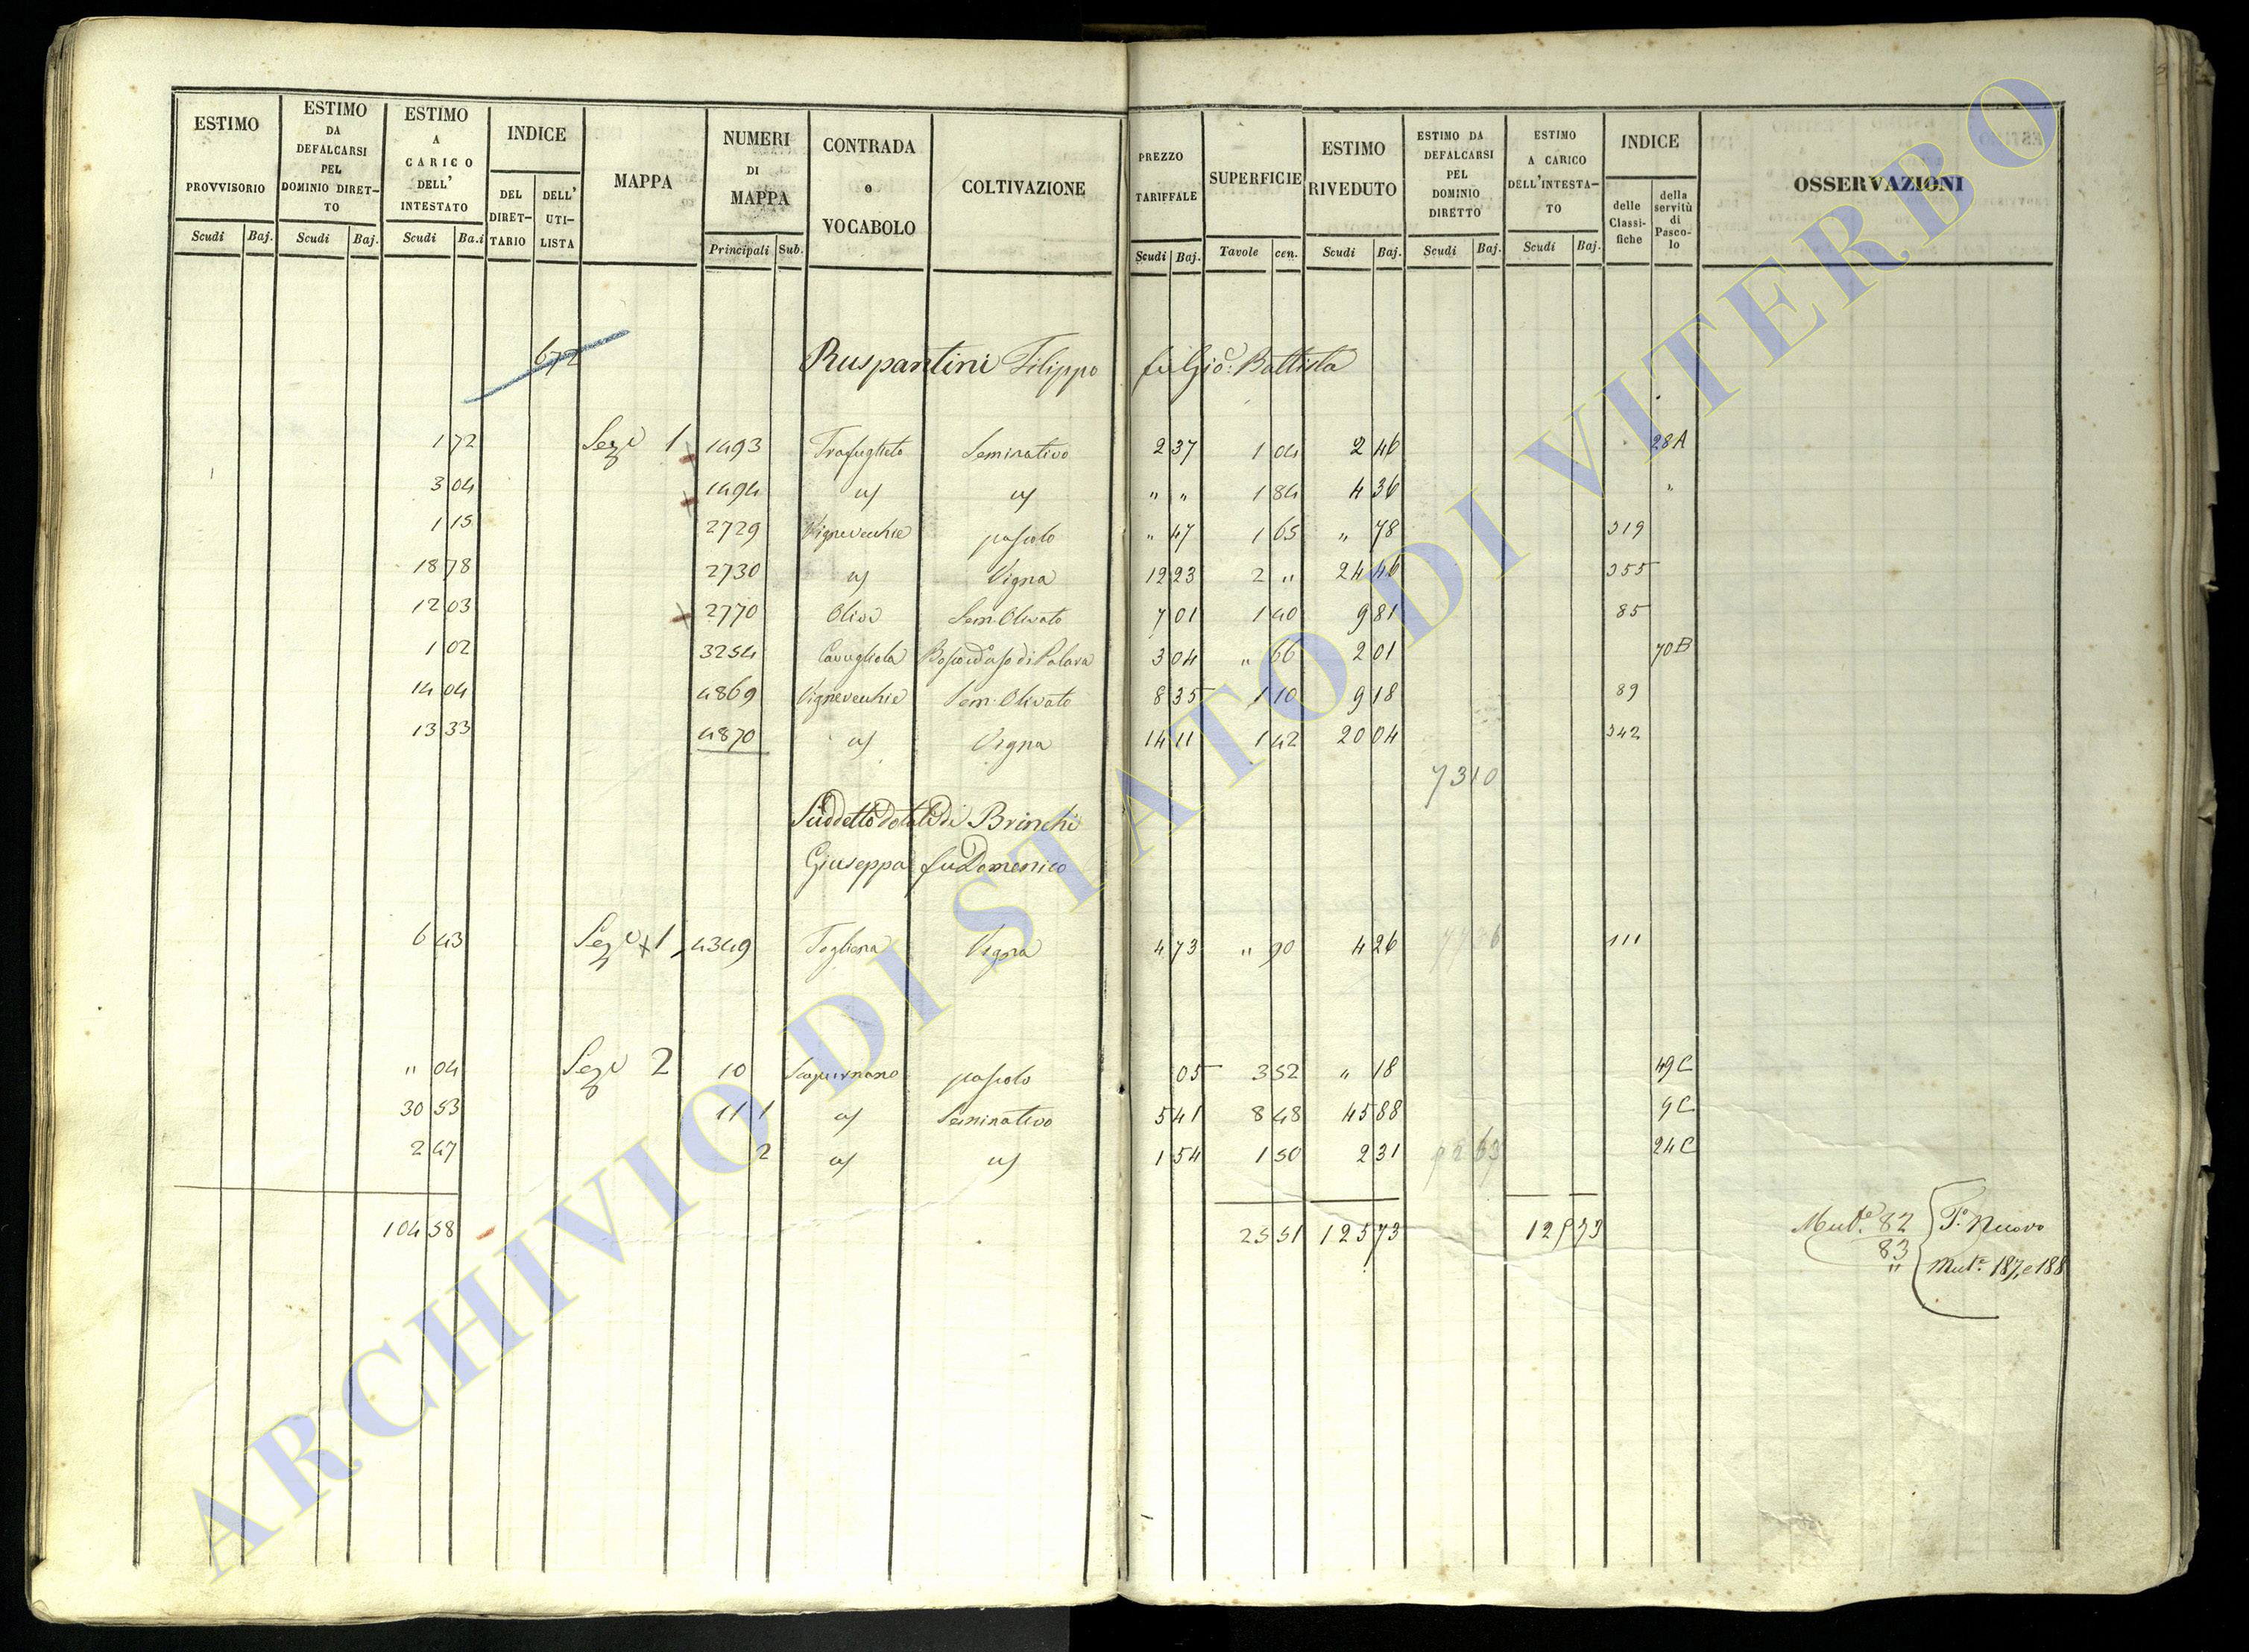 ESTIMO PROVVISORIO Scudi Baj.
ESTIMO DA DEFALCARSI PEL DOMINIO DIRET-TO Scudi Baj.
ESTIMO A CARICO DELL' INTESTATO Scudi Ba.i
INDICE DEL DIRET-TARIO DELL' UTI-LISTA
MAPPA
NUMERI DI MAPPA Principali Sub.
CONTRADA o VOCABOLO
COLTIVAZIONE
PREZZO TARIFFALE Scudi Baj.
SUPERFICIE Tavole cen.
ESTIMO RIVEDUTO Scudi Baj.
ESTIMO DA DEFALCARSI PEL DOMINIO DIRETTO Scudi Baj.
ESTIMO A CARICO DELL'INTESTA-TO Scudi Baj.
INDICE delle Classi-fiche della servitù di Pasco-lo
OSSERVAZIONI
672 Ruspantini Filippo fu Gio: Battista
1 72 Seze 1 1493 Trafuglieto Seminativo 2 37 1 04 2 46 28A
3 04 1494 " " 1 84 4 36 "
1 15 2729 Vignevecchie pascolo " 47 1 65 " 78 319
18 78 2730 Vigna 12 23 2 " 24 46 355
12 03 2770 Sem. Olivato 7 01 1 40 9 81 85
1 02 3254 3 04 " 66 2 01 70B
14 04 4869 Vignevecchie Sem. Olivato 8 35 1 10 9 18 89
13 33 4870 Vigna 14 11 1 42 20 04 342
73 10
Suddetto Dotale di Brinchi
Giuseppa fu Domenico
6 43 Seze 1 4349 Vigna 4 73 " 90 4 26 111
" 04 Seze 2 10 pascolo 05 3 52 " 18 49C
30 53 11 1 Seminativo 5 41 8 48 45 88 9C
2 47 2 1 54 1 50 2 31 24C
104 58 25 51 125 73 125 73 Mut.e 82 P.o Nuovo
83 Mut.e 187, e 188
"
ARCHIVIO DI STATO DI VITERBO